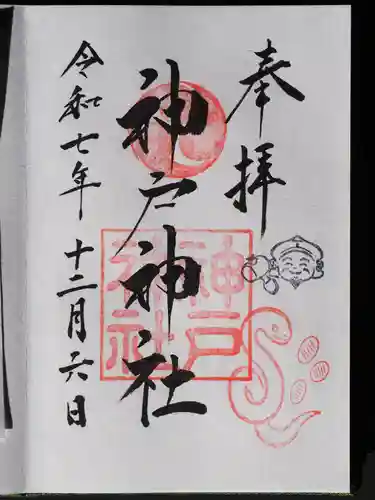 奉拝
神戸神社
神戸
神社
令和七年 十二月六日